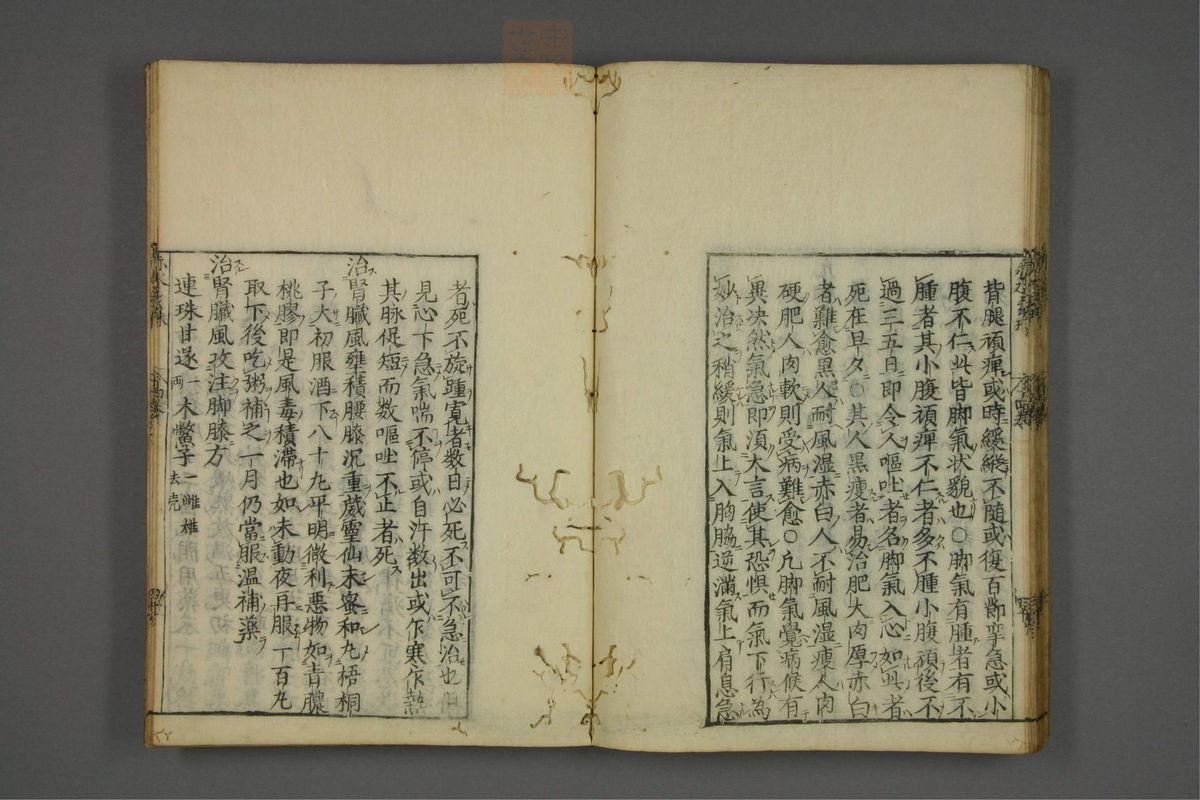 背腿頑痺或時緩縱不隨或復百節攣急或小
腹不仁此皆脚氣状貌也○脚氣有腫者有不
腫者其小腹頑痺不仁者多不腫小腹頑後不
過三五日即令人嘔吐者名脚氣入心如此者
死在旦夕○其人黒瘦者易治肥大肉厚赤白
者難愈黒人耐風湿赤白人不耐風湿瘦人肉
硬肥人肉軟則受病難愈○凢脚氣覺病候有
異决然氣急即湏大言使其恐惧而氣下行為
妙治之稍緩則氣上入胸脇逆滿氣上肩息急
者死不旋踵寛者数日必死不可不急治也
見心下急氣喘不停或自汗数出或乍寒乍熱
其脉促短而数嘔吐不止者死
治腎臓風壅積腰膝沉重葳靈仙末蜜和丸梧桐
子大初服酒下八十丸平明微利惡物如青膿
桃膠即是風毒積滞也如未動夜再服一百丸
取下後吃粥補之一月仍當服温補藥
治腎臓風攻注脚膝方
連珠甘遂一两木鱉子二雌雄去壳